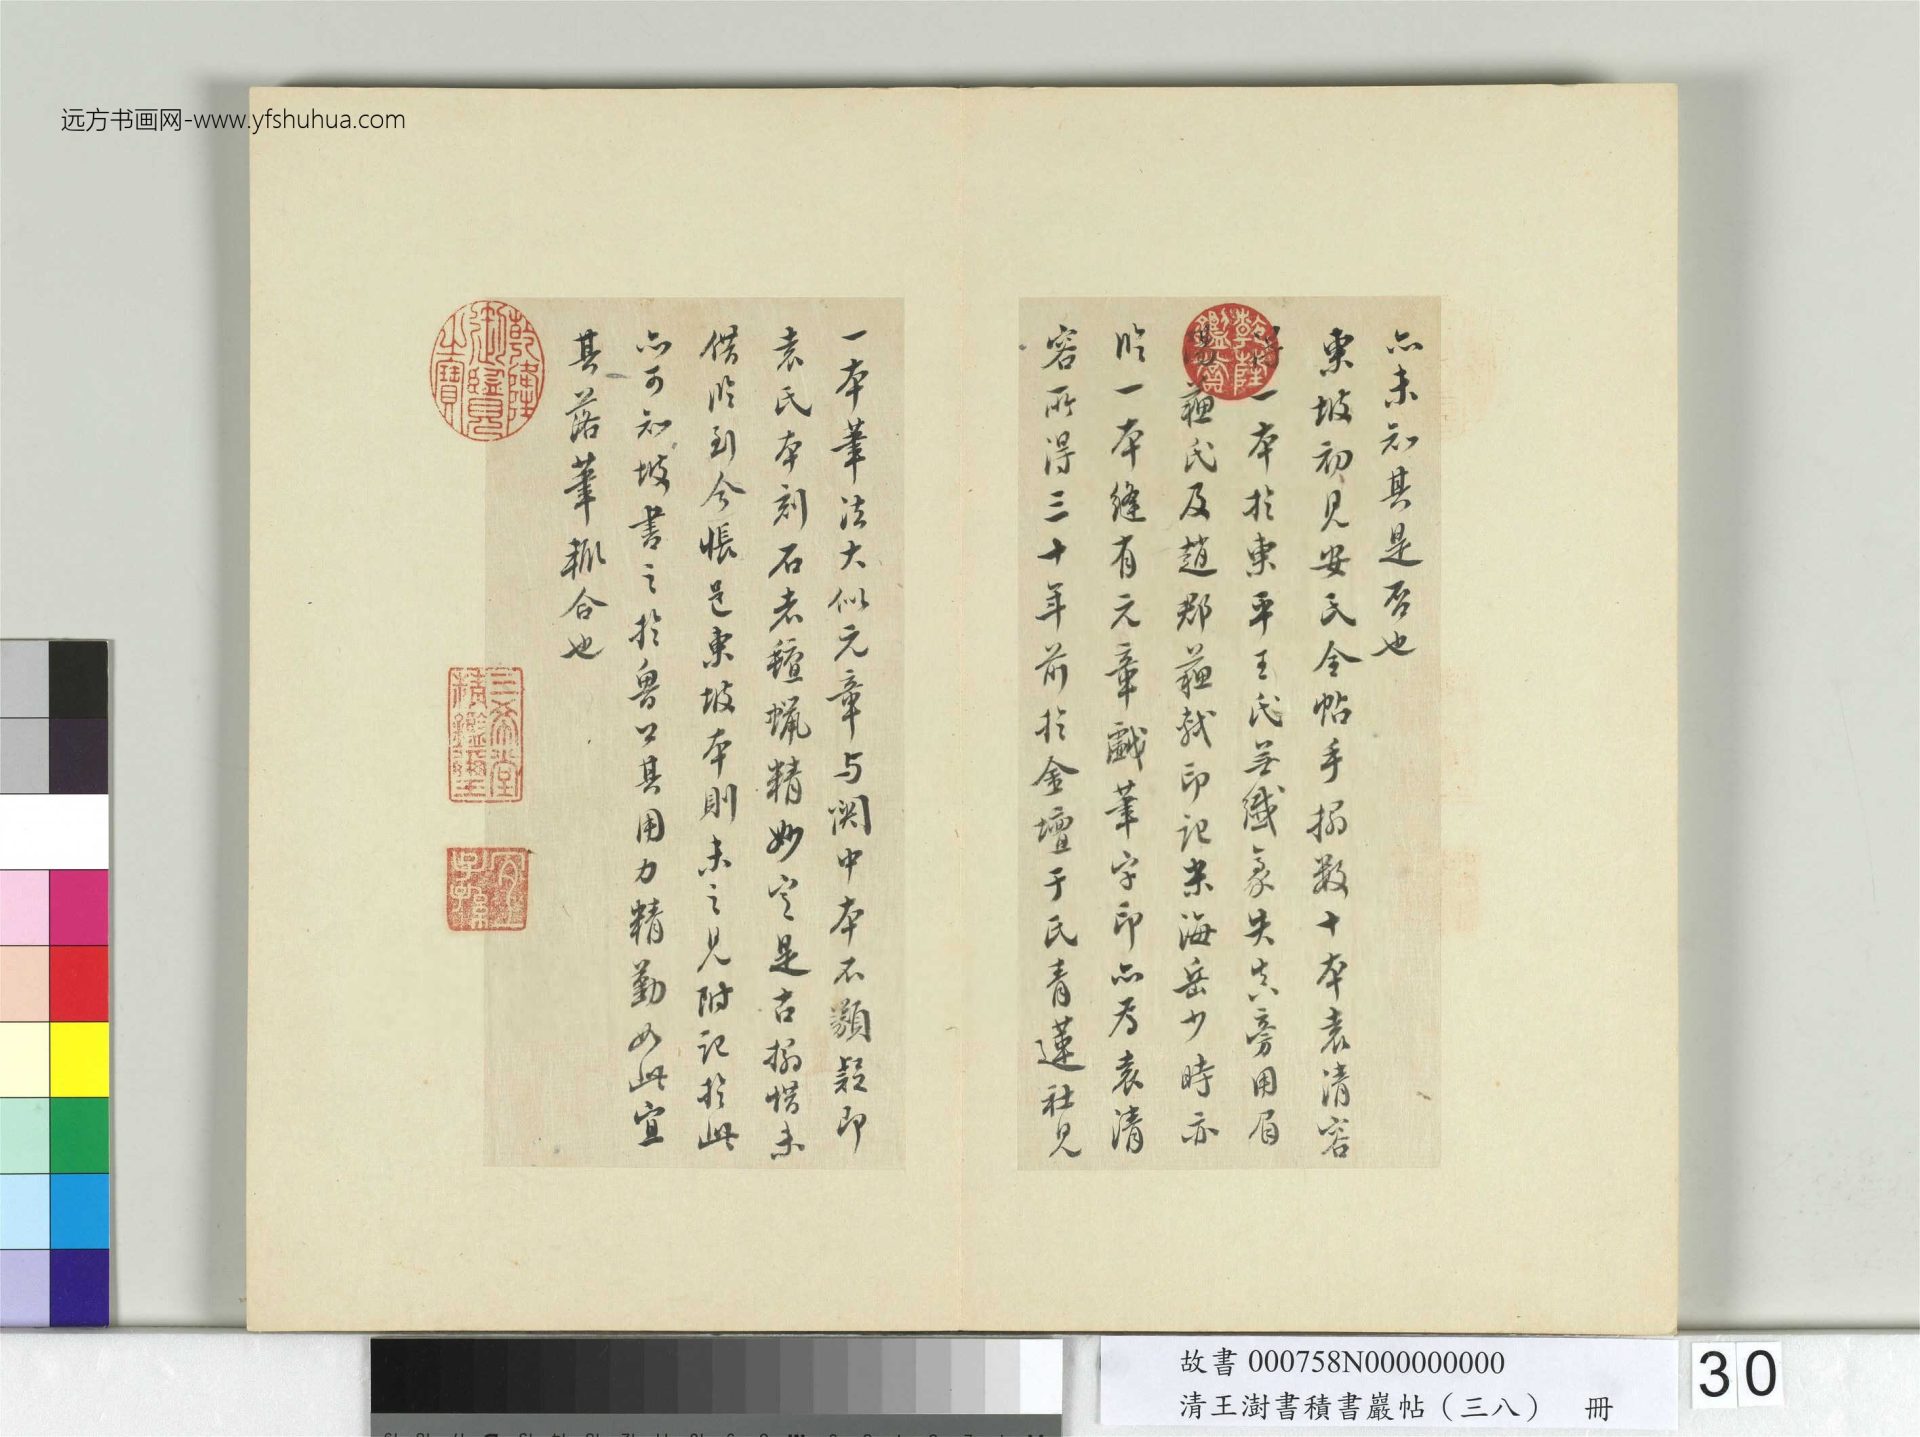 远方书画网-www.yfshuhua.com
亦未知其是否也
東坡初見安氏全帖手搨數十本袁清容
得一本於東平王氏並纖豪失真旁用眉
蘇氏及趙郡蘇軾印記米海岳少時亦
臨一本縫有元章戲筆字印亦為袁清
容所得三十年前於金壇于氏青蓮社見
一本筆法大似元章与関中本不類疑即
袁氏本刻石者氊蠟精妙定是古搨惜未
借臨到今悵怏東坡本則未之見附記於此
亦可知坡書之於魯公其用力精勤如此宜
其落筆輒合也
乾隆鑑賞
乾隆御覽之寶
三希堂精鑑璽
宜子孫
故書000758N000000000
清王澍書積書巖帖（三八） 冊
30